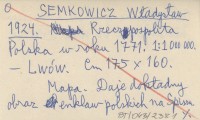 SEMKOWICZ Władysław
1924. Mapa Rzeczypospolita
Polska w roku 1771. 1:1 000 000.
— Lwów. Cm 175 x 160.
Mapa. Daje dokładny
obraz enklaw polskich na Spiszu